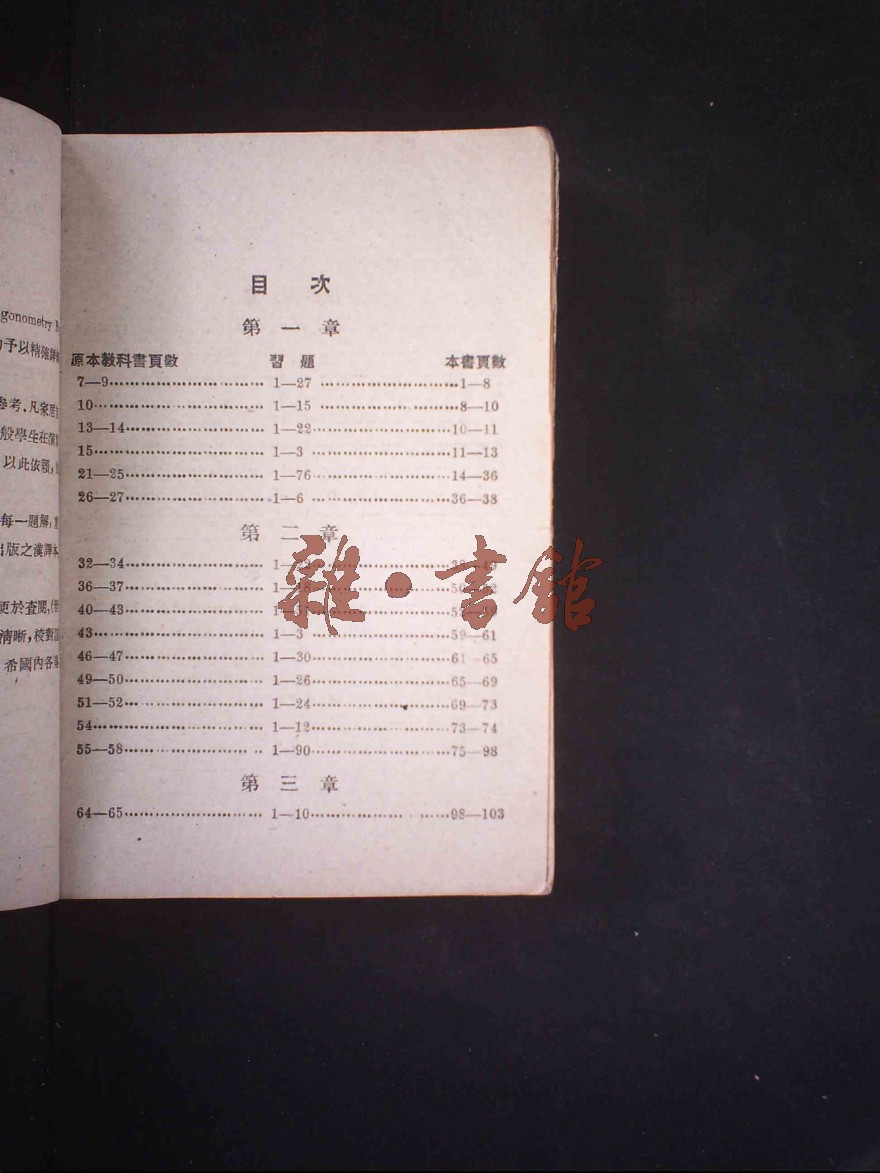 gonometry
予以精確
參考，凡家居
般學生在
以此依賴，
每一題解，
出版之漢譯本
更於查閱，
清晰，校對
希國內各
目 次
第 一 章
原本教科書頁數 習 題 本書頁數
7—9 1—27 1—8
10 1—15 8—10
13—14 1—22 10—11
15 1—3 11—13
21—25 1—76 14—36
26—27 1—6 36—38
第 二 章
32—34
36—37
40—43
43 1—3 59—61
46—47 1—30 61—65
49—50 1—26 65—69
51—52 1—24 69—73
54 1—12 73—74
55—58 1—90 75—98
第 三 章
64—65 1—10 98—103
雜·書館